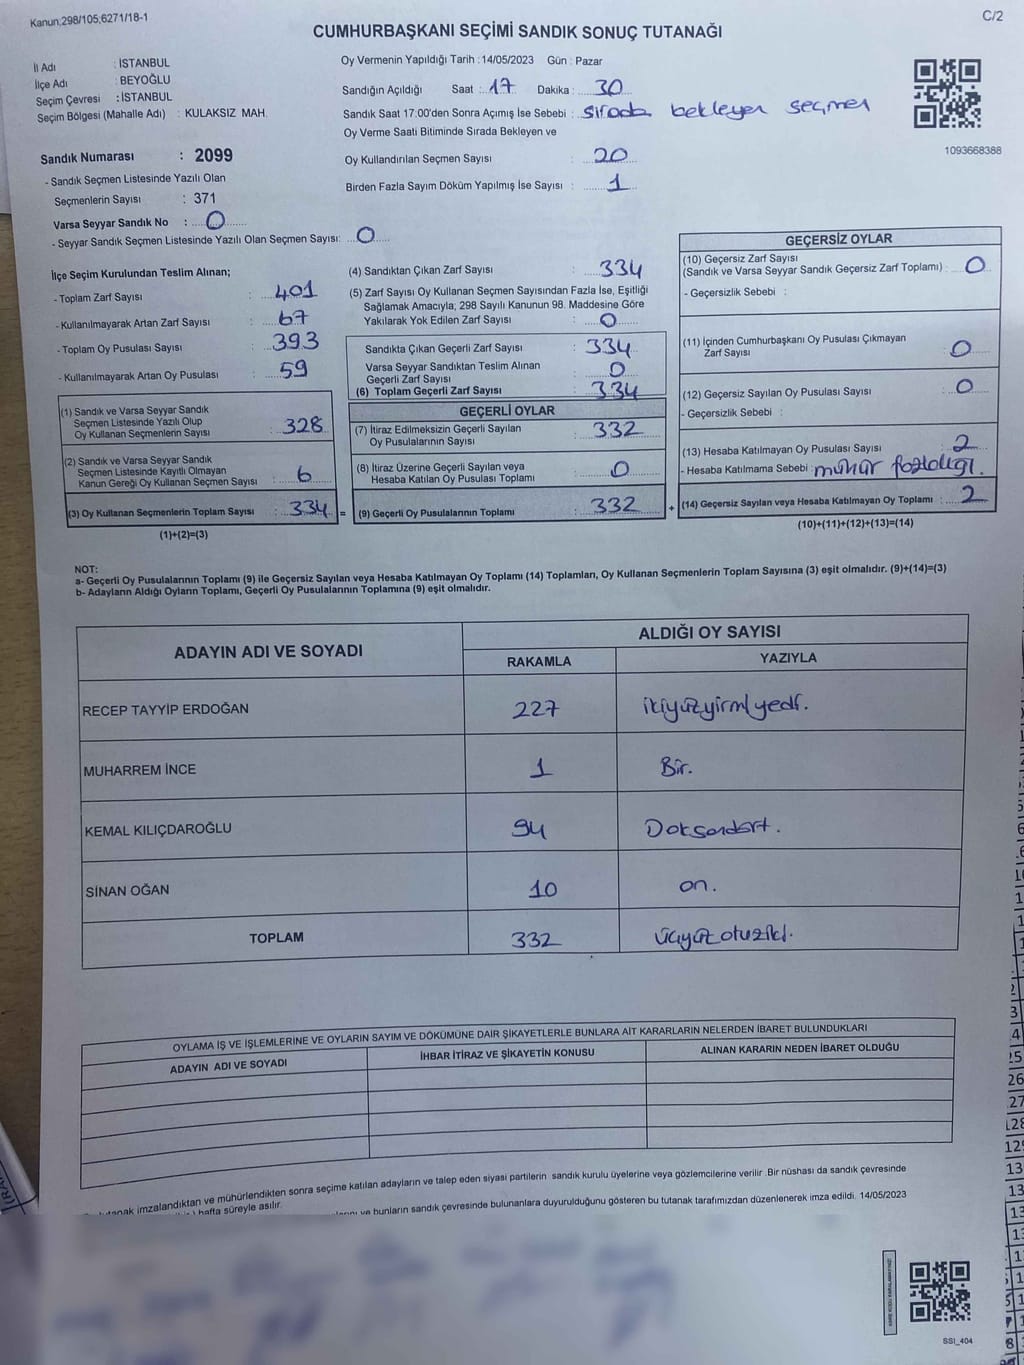 Kanun;298/105;6271/18-1
C/2
CUMHURBAŞKANI SEÇİMİ SANDIK SONUÇ TUTANAĞI
İl Adı : İSTANBUL
İlçe Adı : BEYOĞLU
Seçim Çevresi : İSTANBUL
Seçim Bölgesi (Mahalle Adı) : KULAKSIZ MAH.
Sandık Numarası : 2099
- Sandık Seçmen Listesinde Yazılı Olan
Seçmenlerin Sayısı : 371
Varsa Seyyar Sandık No : 0
- Seyyar Sandık Seçmen Listesinde Yazılı Olan Seçmen Sayısı: 0
Oy Vermenin Yapıldığı Tarih : 14/05/2023 Gün : Pazar
Sandığın Açıldığı Saat : 17 Dakika : 30
Sandık Saat 17:00'den Sonra Açımış İse Sebebi : sırada bekleyen seçmen
Oy Verme Saati Bitiminde Sırada Bekleyen ve
Oy Kullandırılan Seçmen Sayısı : 20
Birden Fazla Sayım Döküm Yapılmış İse Sayısı : 1
1093668388
İlçe Seçim Kurulundan Teslim Alınan;
- Toplam Zarf Sayısı : 401
- Kullanılmayarak Artan Zarf Sayısı : 67
- Toplam Oy Pusulası Sayısı : 393
- Kullanılmayarak Artan Oy Pusulası : 59
(1) Sandık ve Varsa Seyyar Sandık
Seçmen Listesinde Yazılı Olup
Oy Kullanan Seçmenlerin Sayısı : 328
(2) Sandık ve Varsa Seyyar Sandık
Seçmen Listesinde Kayıtlı Olmayan
Kanun Gereği Oy Kullanan Seçmen Sayısı : 6
(3) Oy Kullanan Seçmenlerin Toplam Sayısı : 334 =
(1)+(2)=(3)
(4) Sandıktan Çıkan Zarf Sayısı : 334
(5) Zarf Sayısı Oy Kullanan Seçmen Sayısından Fazla İse, Eşitliği
Sağlamak Amacıyla; 298 Sayılı Kanunun 98. Maddesine Göre
Yakılarak Yok Edilen Zarf Sayısı : 0
Sandıkta Çıkan Geçerli Zarf Sayısı : 334
Varsa Seyyar Sandıktan Teslim Alınan
Geçerli Zarf Sayısı : 0
(6) Toplam Geçerli Zarf Sayısı : 334
GEÇERLİ OYLAR
(7) İtiraz Edilmeksizin Geçerli Sayılan
Oy Pusulalarının Sayısı : 332
(8) İtiraz Üzerine Geçerli Sayılan veya
Hesaba Katılan Oy Pusulası Toplamı : 0
(9) Geçerli Oy Pusulalarının Toplamı : 332 +
GEÇERSİZ OYLAR
(10) Geçersiz Zarf Sayısı
(Sandık ve Varsa Seyyar Sandık Geçersiz Zarf Toplamı) : 0
- Geçersizlik Sebebi :
(11) İçinden Cumhurbaşkanı Oy Pusulası Çıkmayan
Zarf Sayısı : 0
(12) Geçersiz Sayılan Oy Pusulası Sayısı : 0
- Geçersizlik Sebebi :
(13) Hesaba Katılmayan Oy Pusulası Sayısı : 2
- Hesaba Katılmama Sebebi : mühür fazlalığı.
(14) Geçersiz Sayılan veya Hesaba Katılmayan Oy Toplamı : 2
(10)+(11)+(12)+(13)=(14)
NOT:
a- Geçerli Oy Pusulalarının Toplamı (9) ile Geçersiz Sayılan veya Hesaba Katılmayan Oy Toplamı (14) Toplamları, Oy Kullanan Seçmenlerin Toplam Sayısına (3) eşit olmalıdır. (9)+(14)=(3)
b- Adayların Aldığı Oyların Toplamı, Geçerli Oy Pusulalarının Toplamına (9) eşit olmalıdır.
ADAYIN ADI VE SOYADI
ALDIĞI OY SAYISI
RAKAMLA YAZIYLA
RECEP TAYYİP ERDOĞAN 227 ikiyüzyirmiyedi.
MUHARREM İNCE 1 Bir.
KEMAL KILIÇDAROĞLU 94 Doksandört.
SİNAN OĞAN 10 on.
TOPLAM 332 üçyüzotuziki.
OYLAMA İŞ VE İŞLEMLERİNE VE OYLARIN SAYIM VE DÖKÜMÜNE DAİR ŞİKAYETLERLE BUNLARA AİT KARARLARIN NELERDEN İBARET BULUNDUKLARI
ADAYIN ADI VE SOYADI İHBAR İTİRAZ VE ŞİKAYETİN KONUSU ALINAN KARARIN NEDEN İBARET OLDUĞU
imzalandıktan ve mühürlendikten sonra seçime katılan adayların ve talep eden siyasi partilerin sandık kurulu üyelerine veya gözlemcilerine verilir .Bir nüshası da sandık çevresinde
hafta süreyle asılır.
ve bunların sandık çevresinde bulunanlara duyurulduğunu gösteren bu tutanak tarafımızdan düzenlenerek imza edildi. 14/05/2023
SSI_404